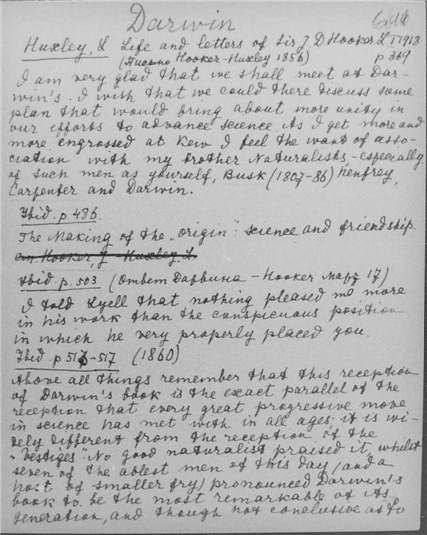 Darwin
Huxley, L Life and letters of Sir J D Hooker L T1 1918
(Письмо Hooker-Huxley 1856) p 369
I am very glad that we shall meet at Dar-
win's. I wish that we could there discuss some
plan that would bring about more unity in
our efforts to advance science. As I get more and
more engrossed at Kew I feel the want of asso-
ciation with my brother Naturalists, - especially
of such men as yourself, Busk (1807-86) Henfrey,
Carpenter and Darwin.
Ibid. p. 486.
The Making of the "origin": science and friendship.
Ibid p. 503 (Ответ Дарвина - Hooker 17)
I told Lyell that nothing pleased me more
in his work than the conspicuous position
in which he very properly placed you.
Ibid p 516-517 (1860)
Above all things remember that this reception
of Darwin's book is the exact parallel of the
reception that every great progressive move
in science has met with in all ages. it is wi-
dely different from the reception of the
"Vestiges". No good naturalist praised it, whilst
seven of the ablest men of this day (and a
host of smaller fry) pronounced Darwin's
book to be the most remarkable of its
generation, and though not conclusive as to